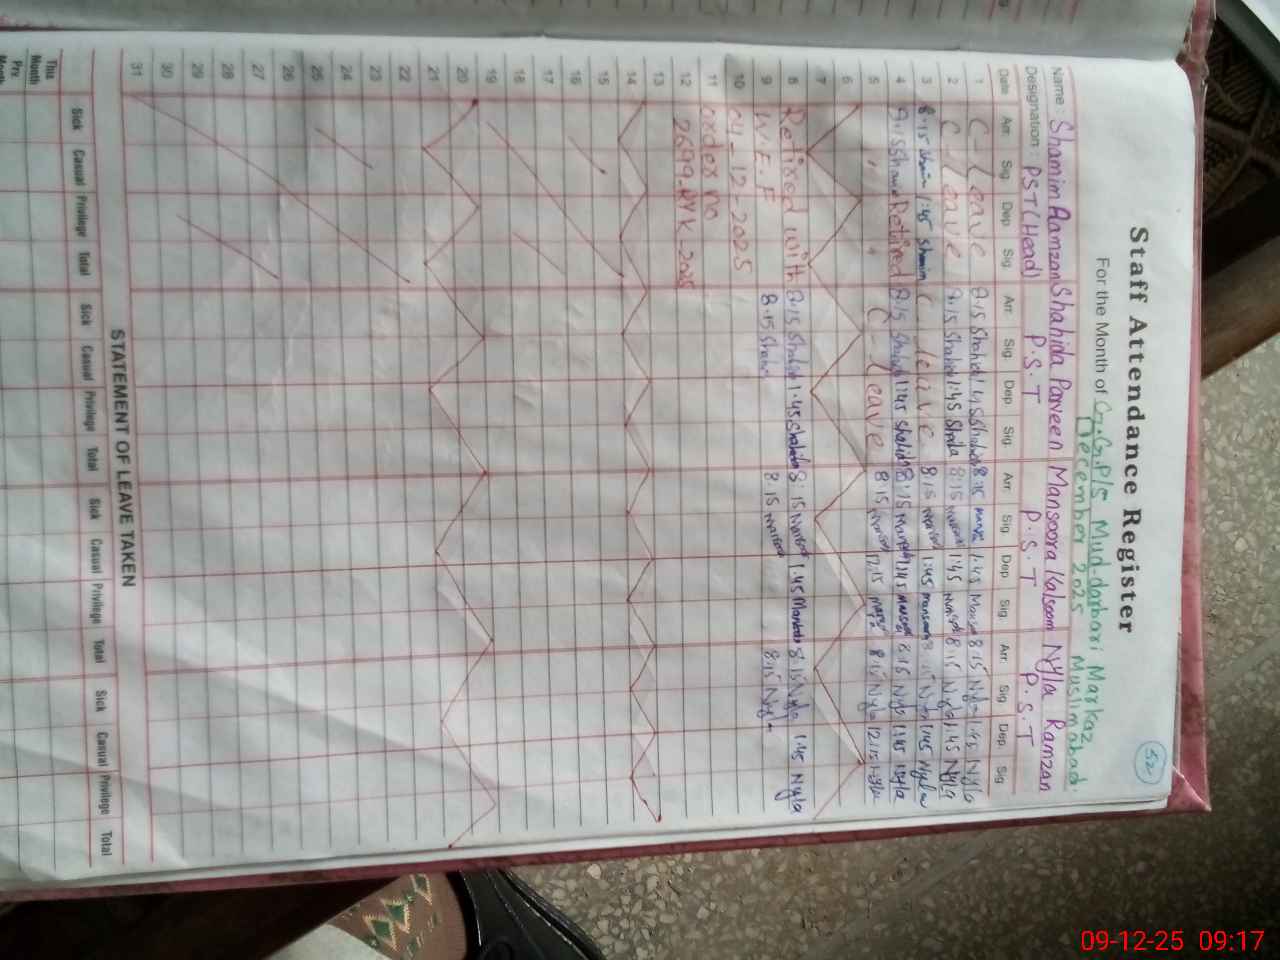 524
Staff Attendance Register
For the Month of G.G.P/S Mud-darbari Markaz
December 2025 Muslimabad.
Name : Shamim Ramzan Shahida Parveen Mansoora Kalsoom Nyla Ramzan
Designation : PST (Head) P.S.T P.S.T P.S.T
Date Arr. Sig. Dep. Sig. Arr. Sig. Dep. Sig. Arr. Sig. Dep. Sig. Arr. Sig. Dep. Sig.
1 C-Leave 8:15 Shahida 1:45 Shahida 8:15 1:45 8:15 Nyla 1:45 Nyla
2 C-Leave 8:15 Shahida 1:45 8:15 1:45 8:15 Nyla 1:45 Nyla
3 8:15 Shamim 1:45 Shamim C-leave 8:15 1:45 Mansoora 8:15 Nyla 1:45 Nyla
4 8:15 Retired 8:15 Shahida 1:45 Shahida 8:15 1:45 8:15 Nyla 1:45 Nyla
5 " " C-Leave 8:15 12:15 8:15 Nyla 12:15 Nyla
6
7
8 Retired with 8:15 Shahida 1:45 Shahida 8:15 1:45 8:15 Nyla 1:45 Nyla
9 W.E.F 8:15 8:15 8:15 Nyla
10 04-12-2025
11 order no
12 2699
13
14
15
16
17
18
19
20
21
22
23
24
25
26
27
28
29
30
31
STATEMENT OF LEAVE TAKEN
Sick Casual Privilege Total Sick Casual Privilege Total Sick Casual Privilege Total Sick Casual Privilege Total
This Month
Prv. Month
09-12-25 09:17